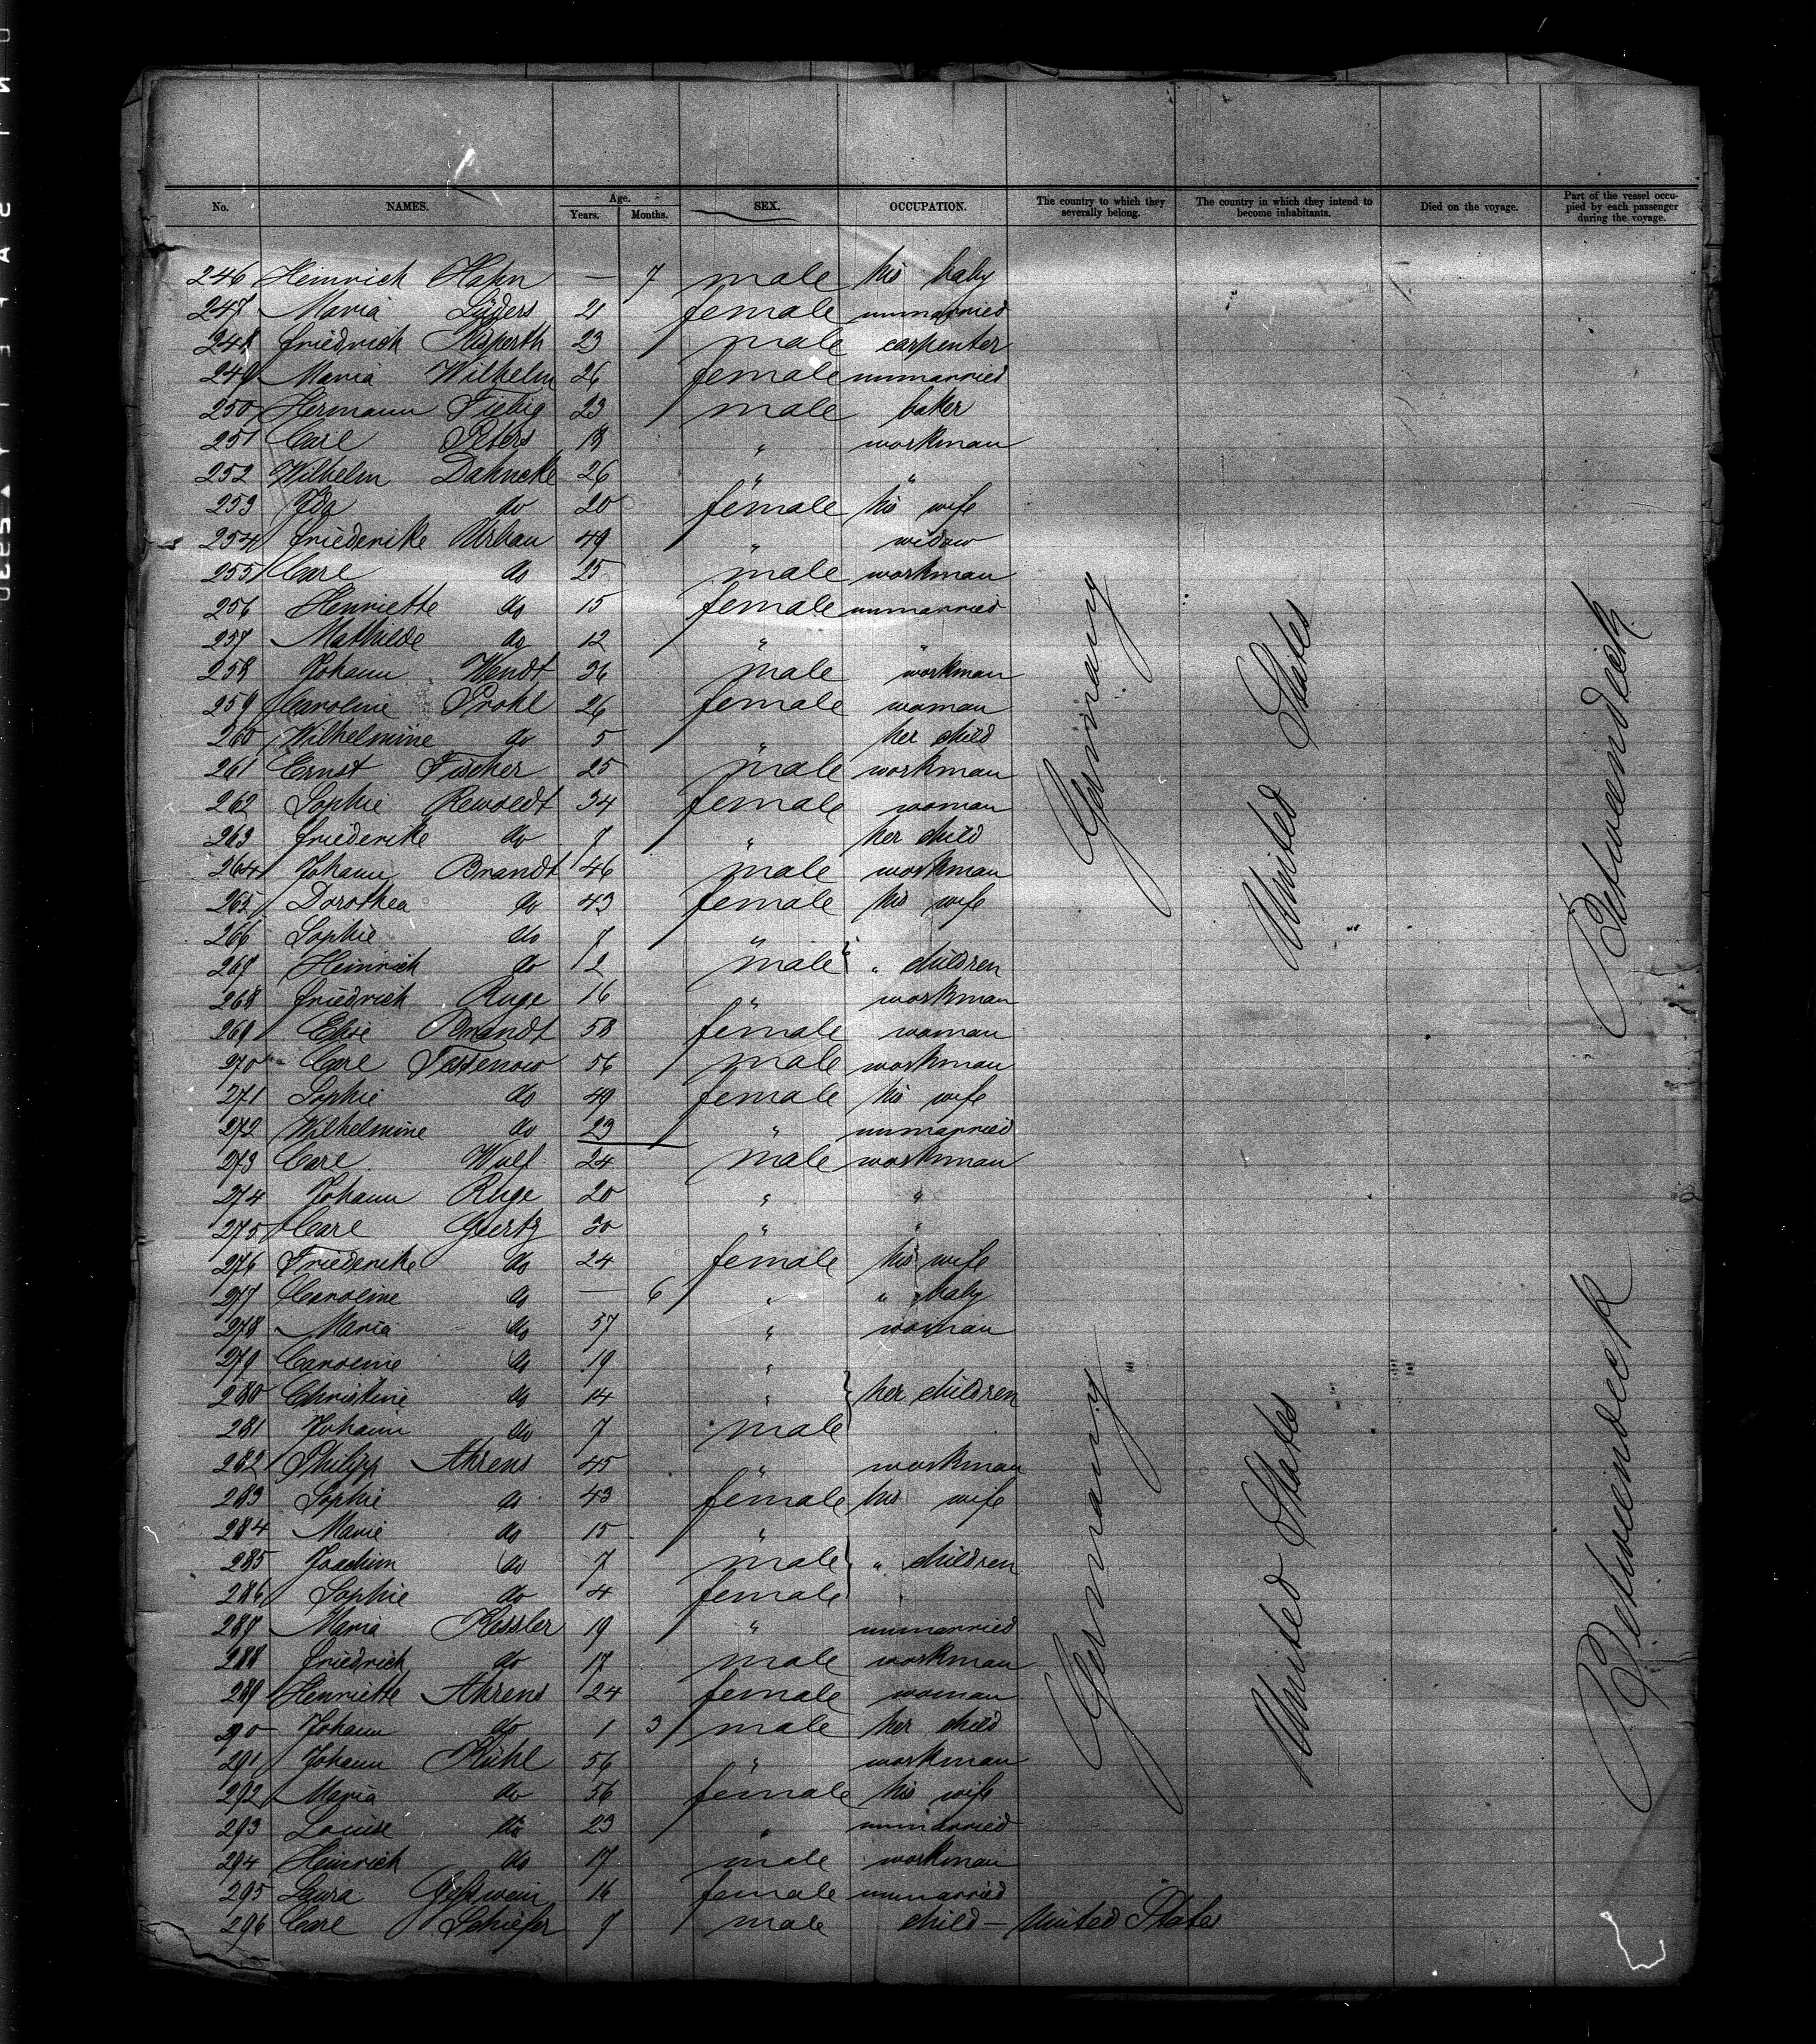 No. NAMES. Age. Years. Months. SEX. OCCUPATION. The country to which they severally belong. The country in which they intend to become inhabitants. Died on the voyage. Part of the vessel occupied by each passenger during the voyage.
246 Heinrich Hahn — 7 male his baby
247 Maria Lüders 21 female unmarried
248 Friedrich 23 male carpenter
249 Maria Wilhelm 26 female unmarried
250 Hermann Fiebig 23 male baker
251 Carl Peters 18 " workman
252 Wilhelm Dahncke 26 " "
253 Ida do 20 female his wife
254 Friederike Urban 49 " widow
255 Carl do 25 male workman
256 Henriette do 15 female unmarried
257 Mathilde do 12 " "
258 Johann Wendt 36 male workman
259 Caroline Prohl 26 female woman
260 Wilhelmine do 5 " her child
261 Ernst Fischer 25 male workman
262 Sophie Rewoldt 34 female woman
263 Friederike do 7 " her child
264 Johann Brandt 46 male workman
265 Dorothea do 43 female his wife
266 Sophie do 7 "
267 Heinrich do 2 male " children
268 Friedrich Ruge 16 " workman
269 Elise Brandt 58 female woman
270 Carl Tessenow 56 male workman
271 Sophie do 49 female his wife
272 Wilhelmine do 23 " unmarried
273 Carl Wulf 24 male workman
274 Johann Ruge 20 " "
275 Carl Geertz 30 " "
276 Friederike do 24 female his wife
277 Caroline do — 6 " " baby
278 Maria do 57 " woman
279 Caroline do 19 "
280 Christine do 14 " her children
281 Johann do 7 male
282 Philipp Ahrens 45 " workman
283 Sophie do 43 female his wife
284 Marie do 15 "
285 Joachim do 7 male " children
286 Sophie do 4 female
287 Maria Kessler 19 " unmarried
288 Friedrich do 17 male workman
289 Henriette Ahrens 24 female woman
290 Johann do 1 3 male her child
291 Johann Kühl 56 " workman
292 Maria do 56 female his wife
293 Louise do 23 " unmarried
294 Heinrich do 17 male workman
295 Laura 16 female unmarried
296 Carl Schiefer 7 male child — United States
Germany
United States
Betweendeck
Germany
United States
Betweendeck